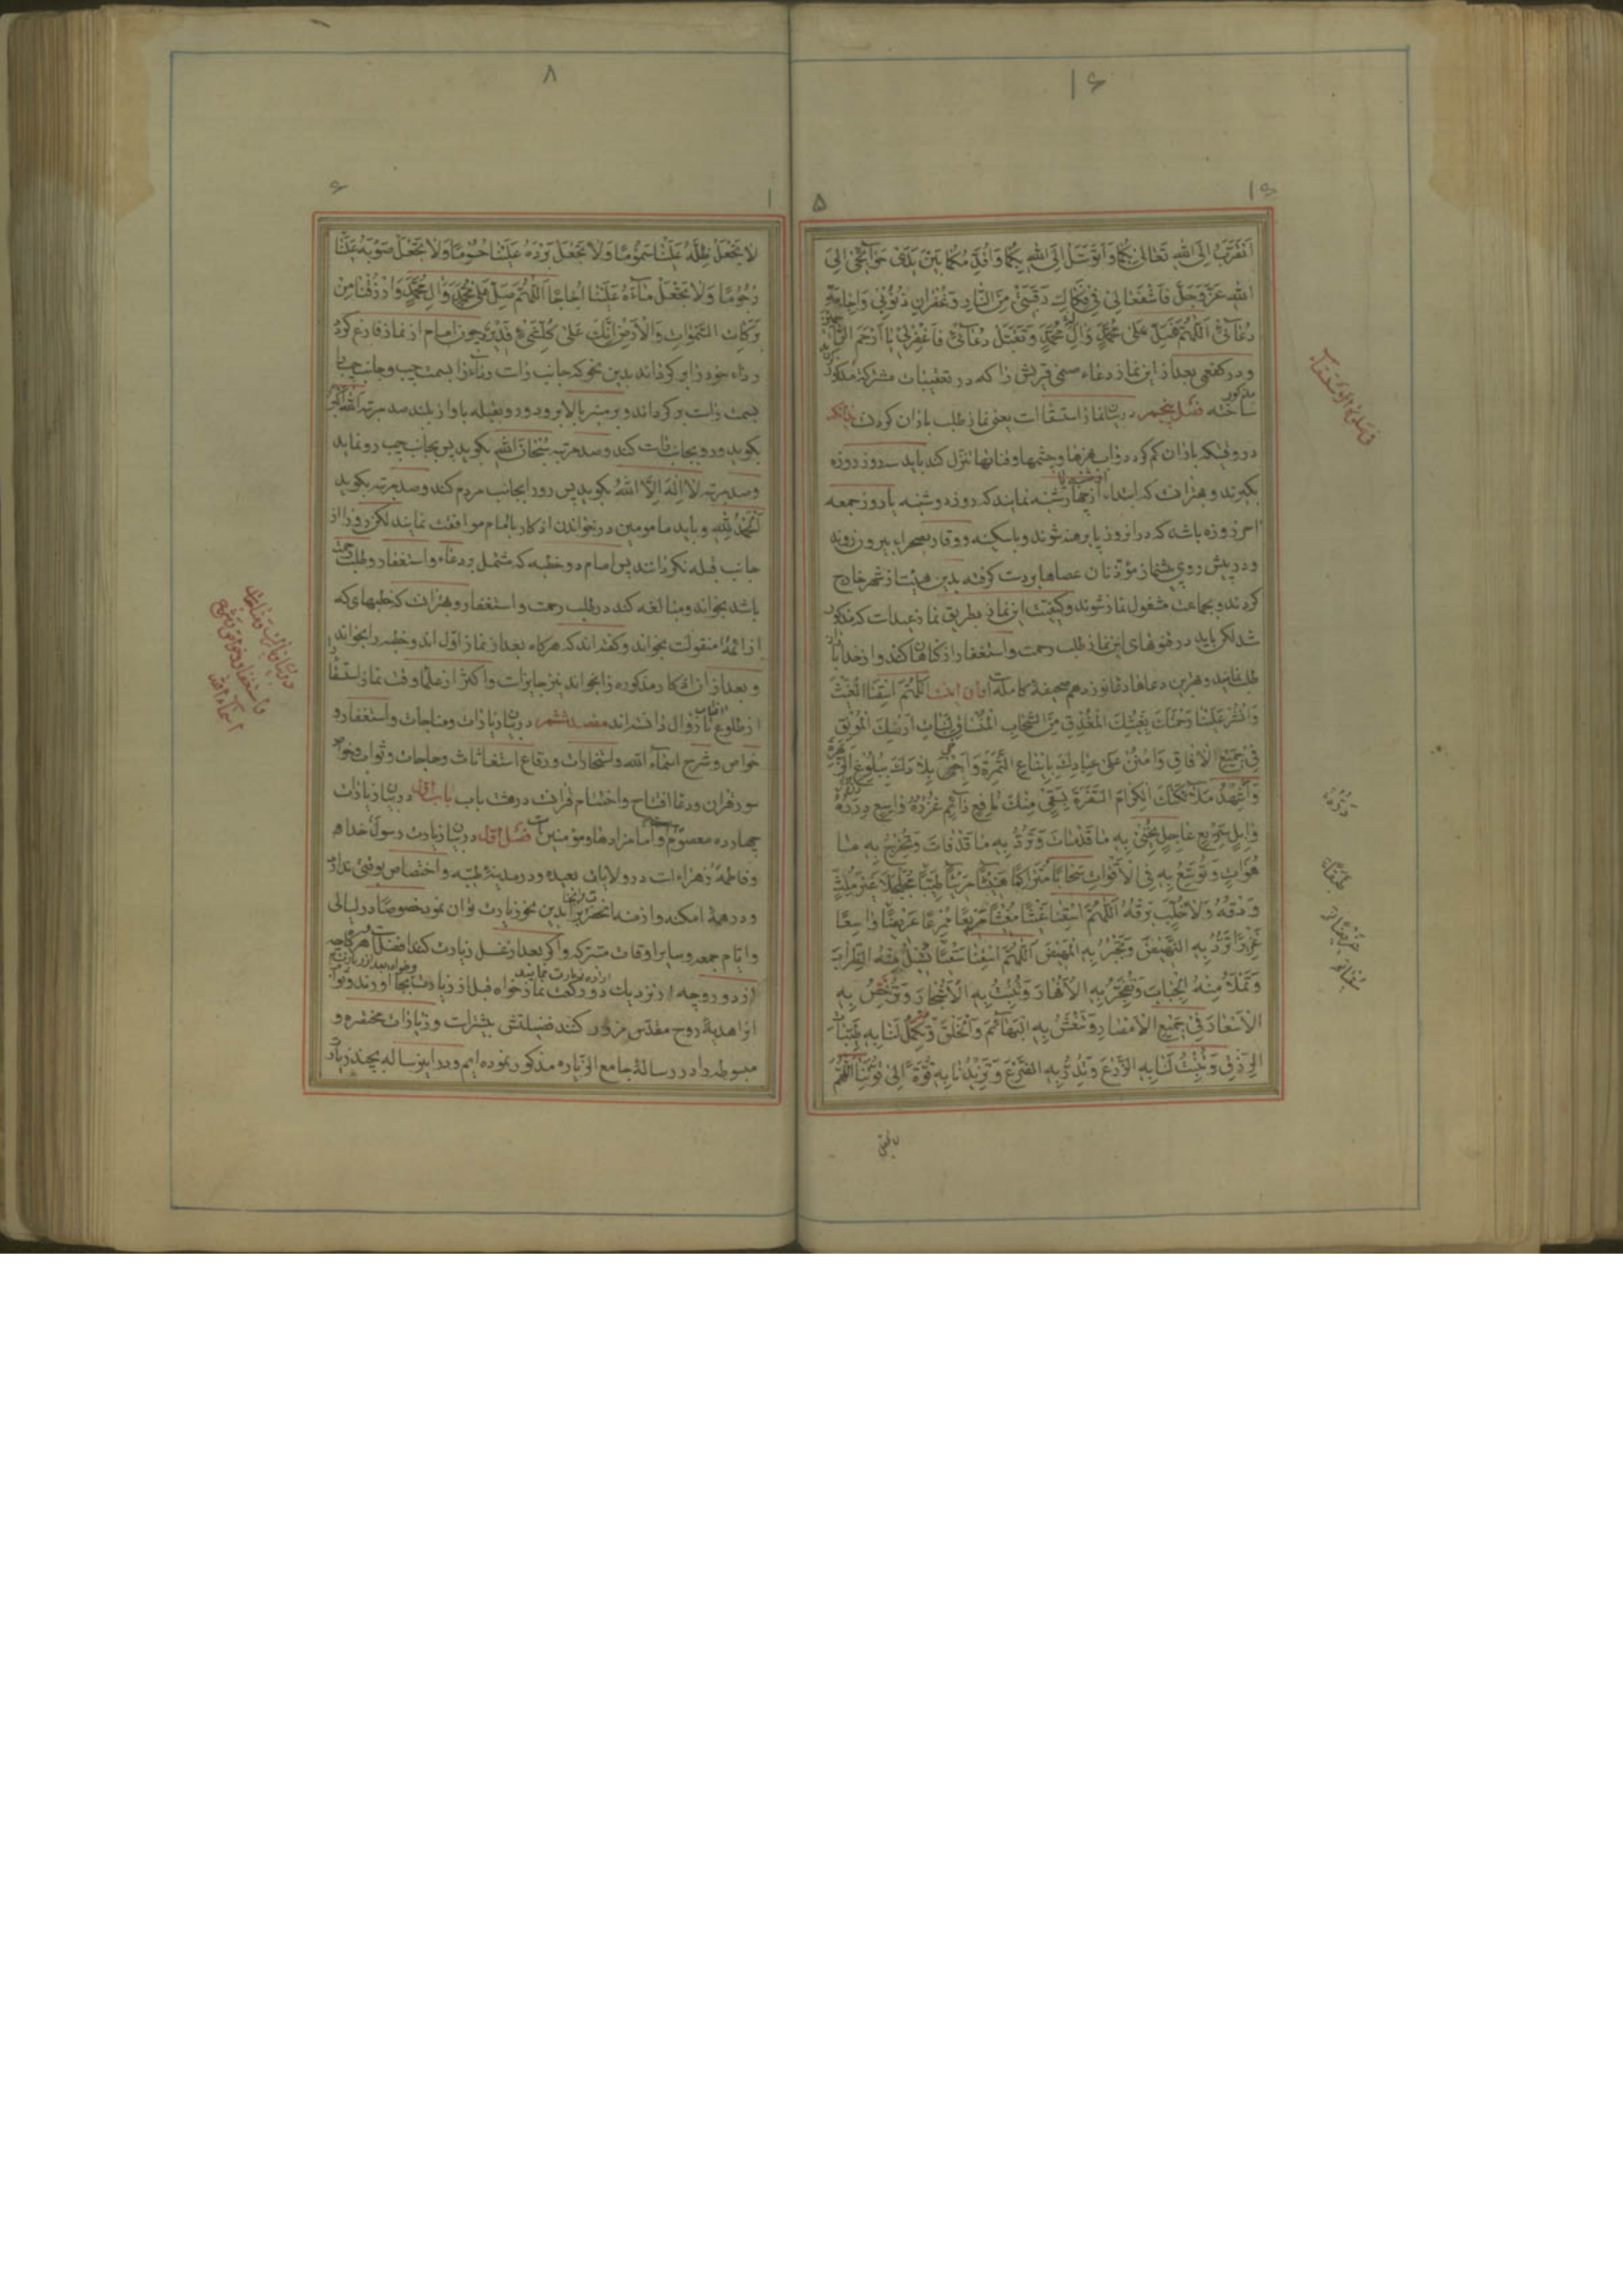 ۱۶
۱۶
۵
اَتَقَرَّبُ اِلَى اللهِ تَعَالىٰ بِكُمَا وَاَتَوَسَّلُ اِلَى اللهِ بِكُمَا وَاُقَدِّمُكُمَا بَيْنَ يَدَىْ حَوَآئِجى اِلَى
اللهِ عَزَّوَجَلَّ فَاشْفَعَالى فى فَكَاكِ رَقَبَتى مِنَ النَّارِ وَغُفْرَانِ ذُنُوبى وَاِجَابَةِ
دُعَآئى اَللّٰهُمَّ فَصَلِّ عَلىٰ مُحَمَّدٍ وَآلِ مُحَمَّدٍ وَتَقَبَّلْ دُعَآئى فَاغْفِرْلى يَا اَرْحَمَ
ودر كفعمى بعد از اين نماز دعاء صنمى قريش را كه در تعقيبات مشتركه مذكور
ساخته فصل پنجم در بيان نماز استسقا است يعنى نماز طلب باران كردن بدانكه
در وقتيكه باران كم گردد و آب نهرها و چشمها و قناتها تنزل كند بايد سه روز روزه
بگيرند و بهتر انست كه ابتداء از چهارشنبه نمايند كه روز دوشنبه يا روز جمعه
اخر روزه باشد كه در انروز پا برهنه شوند و با سكينه و وقار بصحراء بيرون روند
ودر پيش روى پيشنماز مؤذنان عصاها بر دست گرفته بدين هيئت از شهر خارج
گردند و بجماعت مشغول نماز شوند و كيفيت اين نماز بطريق نماز عيد است كه مذكور
شد لكن بايد در قنوتهاى اين نماز طلب رحمت و استغفار از گناهان كنند و از خدا باران
طلب نمايند و بهترين دعاها دعا نوزدهم صحيفهٔ كامله است و ان اينست اَللّٰهُمَّ اسْقِنَا الْغَيْثَ
وَانْشُرْ عَلَيْنَا رَحْمَتَكَ بِغَيْثِكَ الْمُغْدِقِ مِنَ السَّحَابِ الْمُنْسَاقِ لِنَبَاتِ اَرْضِكَ الْمُونِقِ
فى جَميعِ الْاٰفَاقِ وَامْنُنْ عَلىٰ عِبَادِكَ بِايْنَاعِ الثَّمَرَةِ وَاَحْىِ بِلَادَكَ بِبُلُوغِ الزَّهْرَةِ
وَاَشْهِدْ مَلَآئِكَتَكَ الْكِرَامَ السَّفَرَةَ بِسَقْىٍ مِنْكَ نَافِعٍ دَآئِمٍ غُزْرُهُ وَاسِعٍ دِرَرُهُ
وَابِلٍ سَريعٍ عَاجِلٍ تُحْيى بِهِ مَا قَدْ مَاتَ وَتَرُدُّ بِهِ مَا قَدْ فَاتَ وَتُخْرِجُ بِهِ مَا
هُوَاٰتٍ وَتُوَسِّعُ بِهِ فِى الْاَقْوَاتِ سَحَابًا مُتَرَاكِمًا هَنيئًا مَريئًا طَبَقًا مُجَلْجَلًا غَيْرَ مُلِثٍّ
وَدْقُهُ وَلَا خُلَّبٍ بَرْقُهُ اَللّٰهُمَّ اسْقِنَا غَيْثًا مُغيثًا مَريعًا مُمْرِعًا عَريضًا وَاسِعًا
غَزيرًا تَرُدُّ بِهِ النَّهيضَ وَتَجْبُرُ بِهِ الْمَهيضَ اَللّٰهُمَّ اسْقِنَا سَقْيًا تُسيلُ مِنْهُ الظِّرَابَ
وَتَمْلَأُ مِنْهُ الْجِبَابَ وَتُفَجِّرُ بِهِ الْاَنْهَارَ وَتُنْبِتُ بِهِ الْاَشْجَارَ وَتُرَخِّصُ بِهِ
الْاَسْعَارَ فى جَميعِ الْاَمْصَارِ وَتَنْعَشُ بِهِ الْبَهَآئِمَ وَالْخَلْقَ وَتُكَمِّلُ لَنَا بِهِ طَيِّبَاتِ
الرِّزْقِ وَتُنْبِتُ لَنَا بِهِ الزَّرْعَ وَتُدِرُّ بِهِ الضَّرْعَ وَتَزيدُنَا بِهِ قُوَّةً اِلىٰ قُوَّتِنَا اَللّٰهُمَّ
۸
۶
۱
لَا تَجْعَلْ ظِلَّهُ عَلَيْنَا سَمُومًا وَلَا تَجْعَلْ بَرْدَهُ عَلَيْنَا حُسُومًا وَلَا تَجْعَلْ صَوْبَهُ عَلَيْنَا
رُجُومًا وَلَا تَجْعَلْ مَآءَهُ عَلَيْنَا اُجَاجًا اَللّٰهُمَّ صَلِّ عَلىٰ مُحَمَّدٍ وَاٰلِ مُحَمَّدٍ وَارْزُقْنَا مِنْ
بَرَكَاتِ السَّمٰوَاتِ وَالْاَرْضِ اِنَّكَ عَلىٰ كُلِّ شَىْءٍ قَديرٌ چون امام از نماز فارغ گردد
رداء خود را برگرداند بدين نحو كه جانب راست رداء را بسمت چپ و جانب چپ را
بسمت راست برگرداند و بر منبر بالا برود و رو بقبله باواز بلند صد مرتبه الله اكبر
بگويد و رو بجانب راست كند و صد مرتبه سُبْحَانَ اللهِ بگويد پس بجانب چپ رو نمايد
وصد مرتبه لَا اِلٰهَ اِلَّا اللهُ بگويد پس رو را بجانب مردم كند و صد مرتبه بگويد
اَلْحَمْدُ لِلّٰهِ و بايد مامومين در خواندن اذكار با امام موافقت نمايند لكن رو را از
جانب قبله نگردانند پس امام دو خطبه كه مشتمل بر دعاء و استغفار و طلب رحمت
باشد بخواند و مبالغه كند در طلب رحمت و استغفار و بهتر انست كه خطبهاى كه
از ائمهٔ منقولست بخواند و گفته اند كه هرگاه بعد از نماز اول اند و خطبه را بخواند
و بعد از ان اذكار مذكوره را بخواند نيز جايز است و اكثر از علما وقت نماز استسقا را
از طلوع افتاب تا زوال دانسته اند مقصد ششم در بيان زيارات و مناجات و استغفار و
خواص و شرح اسمآء الله و استخارات و رقاع استغاثات و حاجات و ثواب و خواص
سور قران و دعا افتتاح و اختتام قرائت در هشت باب باب اول در بيان زيارات
چهارده معصوم و امامزادها و مؤمنين است فصل اول در بيان زيارت رسول خدا
وفاطمهٔ زهراء است در ولايات بعيده و در مدينهٔ طيبه و اختصاص بوقتى ندارد
و در همهٔ امكنه و ازمنه انحضرت را بدين نحو زيارت توان نمود خصوصًا در ليالى
وايام جمعه و ساير اوقات متبركه و اگر بعد از غسل زيارت كند افضل است هرگاه
از دور و چه از نزديك دو ركعت نماز خواه قبل از زيارت بجا اورند و ثواب
انرا هديهٔ روح مقدس مزور كنند فضيلتش بيشتر است و زيارات مختصره و
مبسوطه را در رسالهٔ جامع الزياره مذكور نموده ايم و در اين رساله بچند زيارت